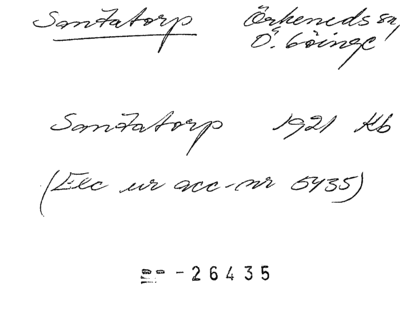 Smitatorp Örkeneds sn,
Ö. Göinge
Smitatorp 1921 Kb
(Exc ur acc-nr 5435)
-26435